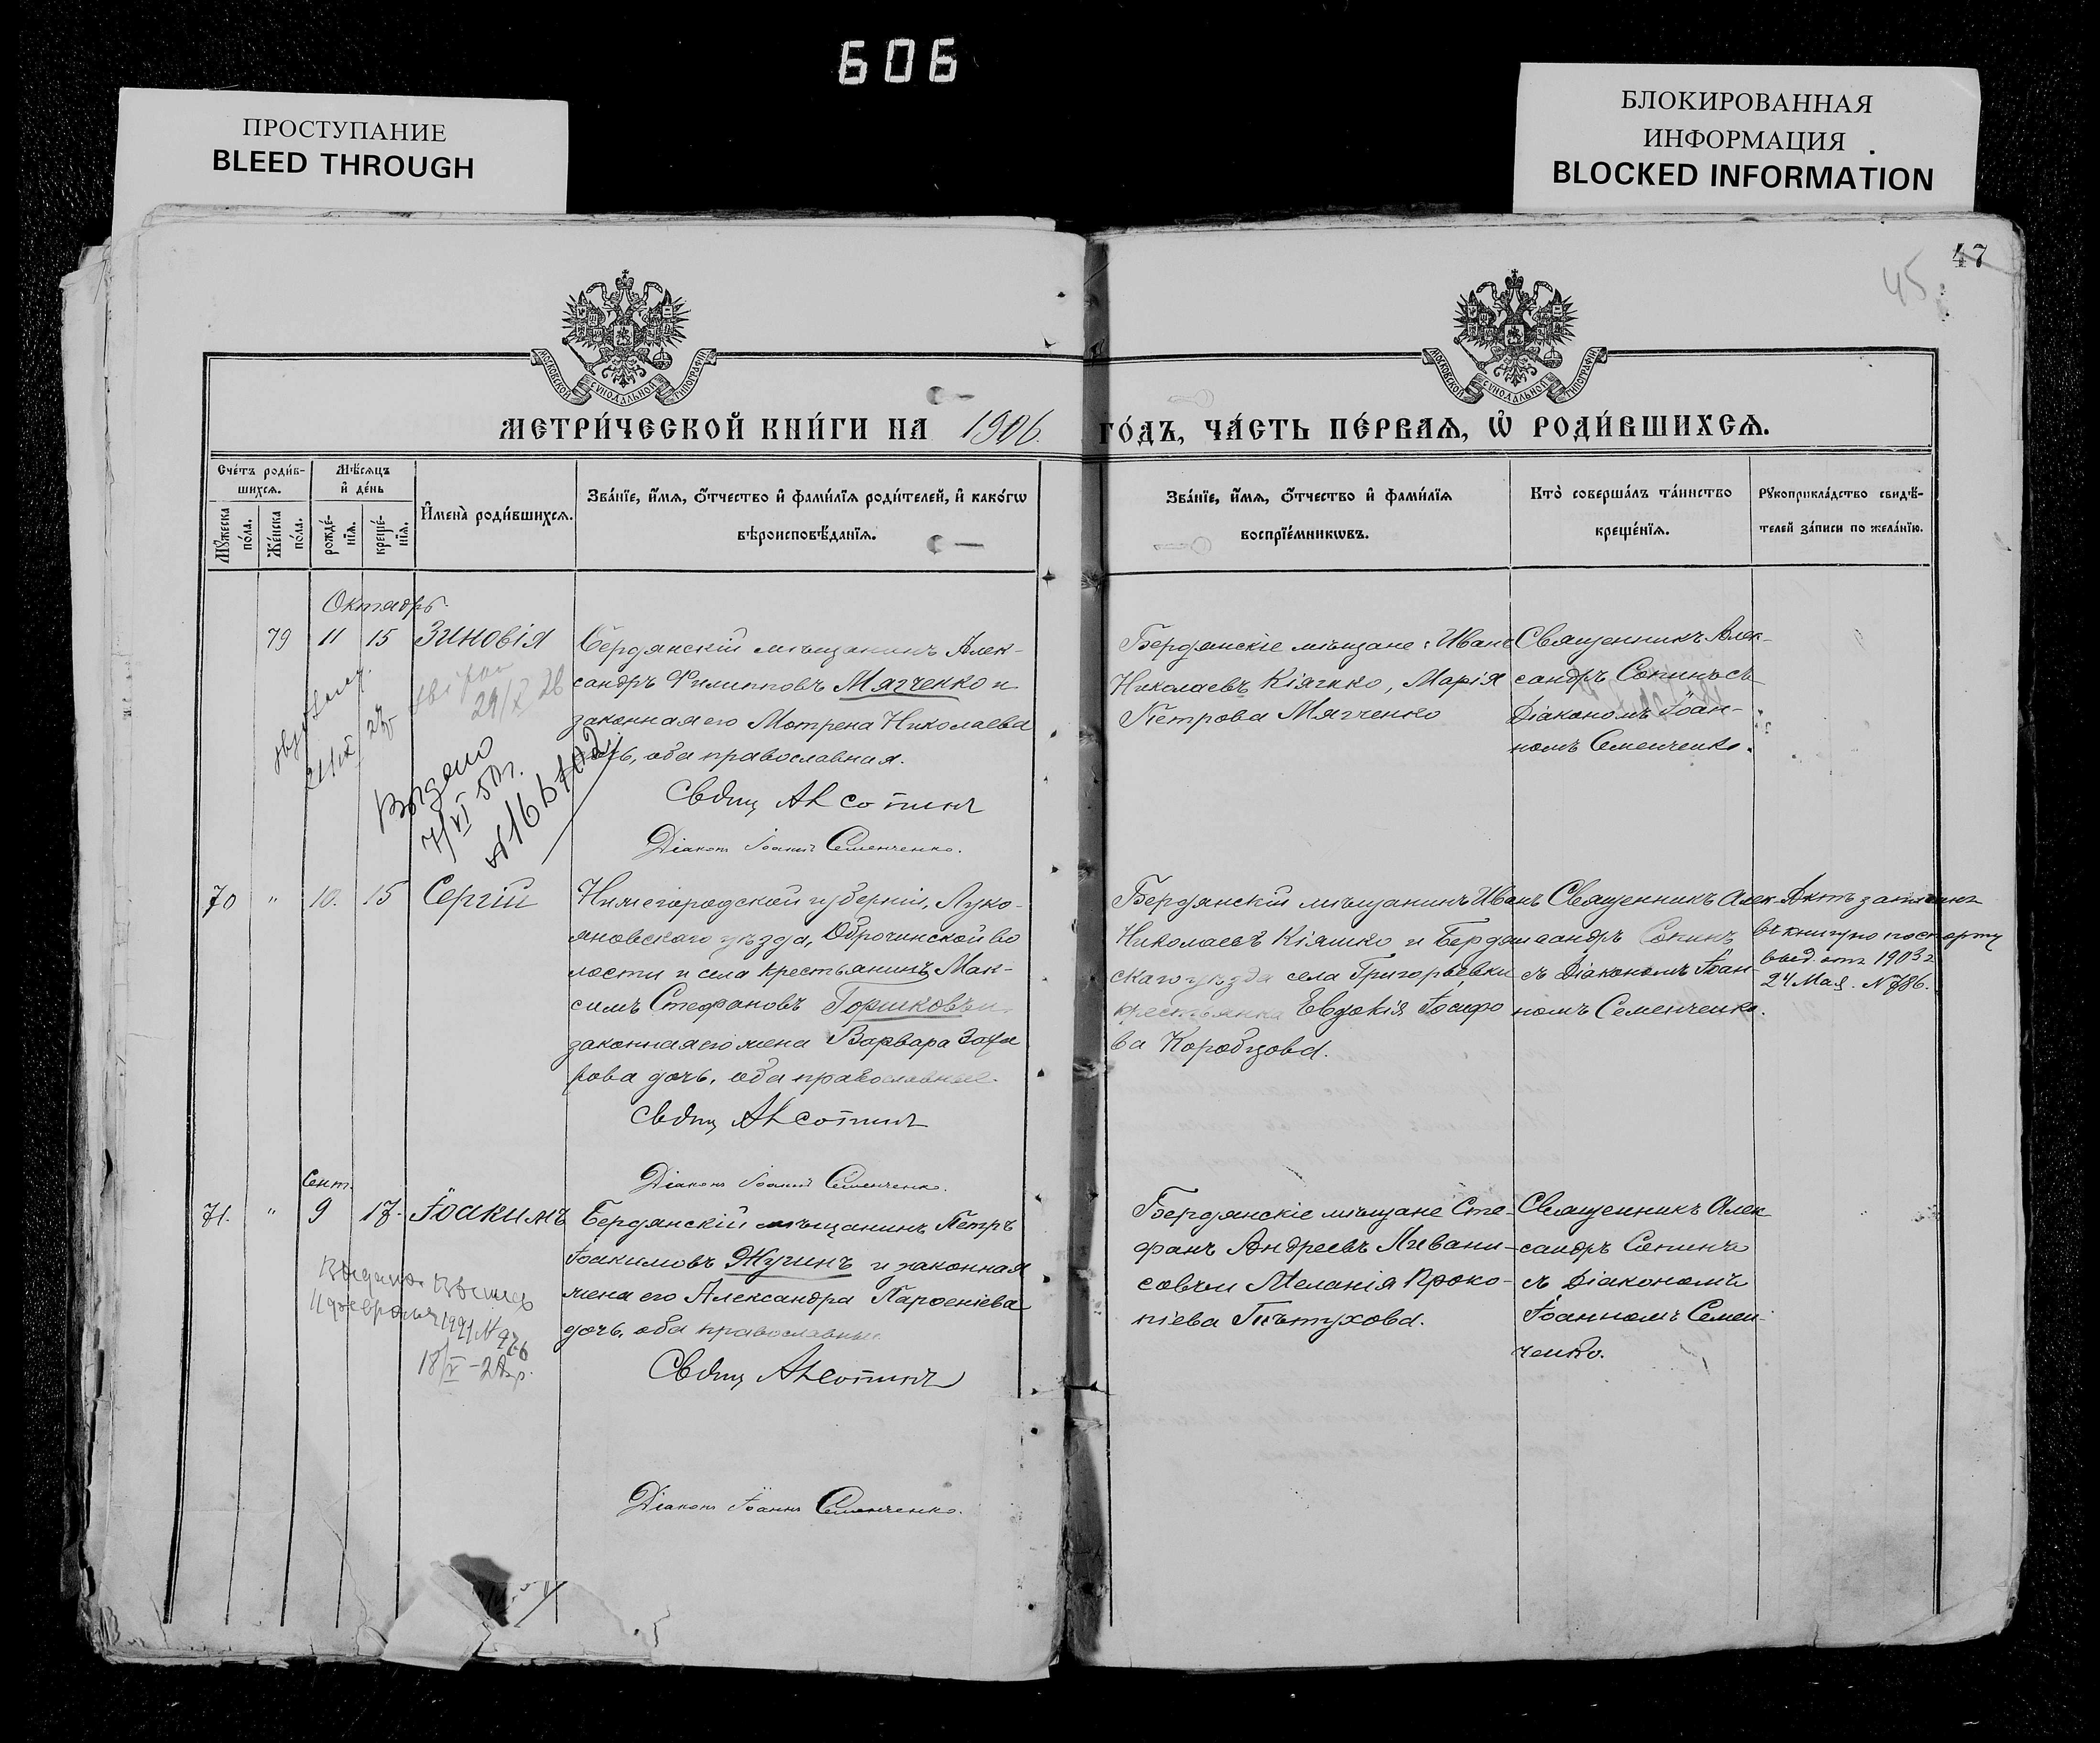 606
ПРОСТУПАНИЕ
BLEED THROUGH
БЛОКИРОВАННАЯ
ИНФОРМАЦИЯ
BLOCKED INFORMATION
47
45
МОСКОВСКОЙ СѴНОДАЛЬНОЙ ТИПОГРАФІИ
МОСКОВСКОЙ СѴНОДАЛЬНОЙ ТИПОГРАФІИ
МЕТРИ́ЧЕСКОЙ КНИ́ГИ НА 1906. ГО́ДЪ, ЧА́СТЬ ПЕ́РВАЯ, Ѡ҆ РОДИ́ВШИХСЯ.
Сче́тъ роди́в-
шихся.
Мѣ́сяцъ
и҆ де́нь
Мꙋ́жеска по́ла.
Же́нска по́ла.
рожде́-
нїя.
креще́-
нїя.
И҆мена̀ роди́вшихся.
Зва́нїе, и҆́мя, ѻ҆́тчество и҆ фами́лїя роди́телей, и҆ како́гѡ
вѣроисповѣ́данїя.
Зва́нїе, и҆́мя, ѻ҆́тчество и҆ фами́лїя
воспрїе́мникѡвъ.
Кто̀ соверша́лъ та́инство
креще́нїя.
Рꙋкоприкла́дство свидѣ́-
телей за́писи по жела́нїю.
Октябрь.
79 11 15 Зиновія
Бердянскій мѣщанинъ Алек-
сандръ Филипповъ Мягченко и
законная его Мотрена Николаева
дочь, оба православная.
Діаконъ Іоаннъ Семенченко.
Бердянскіе мѣщане: Иванъ
Николаевъ Кіяшко, Марія
Петрова Мягченко
Священникъ Алек-
сандръ Сопинъ съ
Діакономъ Іоан-
номъ Семенченко.
29/X 26
Выдано
7/VI 50г.
70 " 10. 15 Сергій
Нижегородской губерніи, Луко-
яновскаго уѣзда, Оброчинской во
лости и села крестьянинъ Мак-
симъ Стефановъ Горшковъ и
законная его жена Варвара Заха
рова дочь, оба православные.
Діаконъ Іоаннъ Семенченко.
Бердянскій мѣщанинъ Иванъ
Николаевъ Кіяшко и Бердян
скаго уѣзда села Григорьевки
крестьянка Евдокія Іосифо
ва Коробцова.
Священникъ Алек
сандръ Сопинъ
съ Діакономъ Іоан-
номъ Семенченко.
Актъ записанъ
въ книгу по паспорту
выд. отъ 1903 г
24 Мая. № 786.
Сент.
71. " 9 17. Іоакимъ
Бердянскій мѣщанинъ Петръ
Іоакимовъ Жучинъ и законная
жена его Александра Парѳеніева
дочь, оба православные
Діаконъ Іоаннъ Семенченко.
Бердянскіе мѣщане Сте-
фанъ Андреевъ Ливани-
совъ и Меланія Проко-
піева Пѣтухова.
Священникъ Алек
сандръ Сопинъ
съ Діакономъ
Іоанномъ Семен-
ченко.